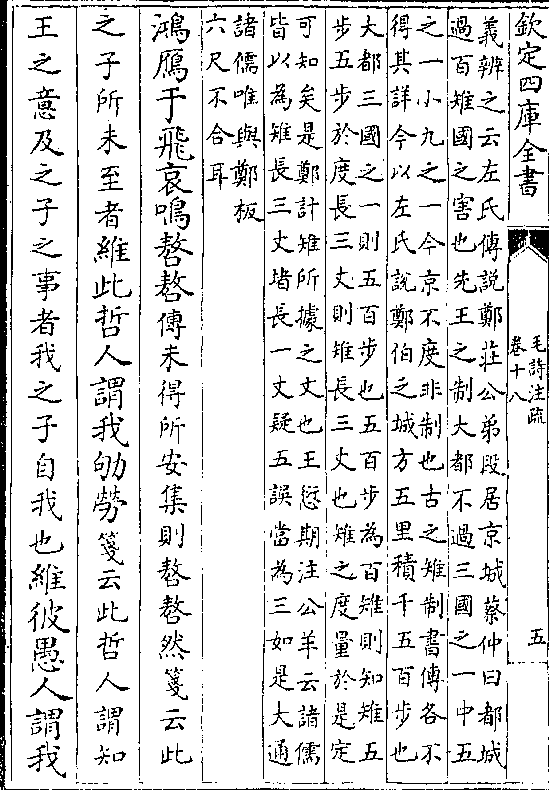 欽定四庫全書
毛詩注疏
卷十八
五
義辨之云左氏傳說鄭莊公弟段居京城蔡仲曰都城
過百雉國之害也先王之制大都不過三國之一中五
之一小九之一今京不度非制也古之雉制書傳各不
得其詳今以左氏說鄭伯之城方五里積千五百步也
大都三國之一則五百步也五百步為百雉則知雉五
步五步於度長三丈則雉長三丈也雉之度量於是定
可知矣是鄭計雉所據之丈也王愆期注公羊云諸儒
皆以為雉長三丈堵長一丈疑五誤當為三如是大通
諸儒唯與鄭板
六尺不合耳
鴻鴈于飛哀鳴嗸嗸傳未得所安集則嗸嗸然箋云此
之子所未至者維此哲人謂我劬勞箋云此哲人謂知
王之意及之子之事者我之子自我也維彼愚人謂我